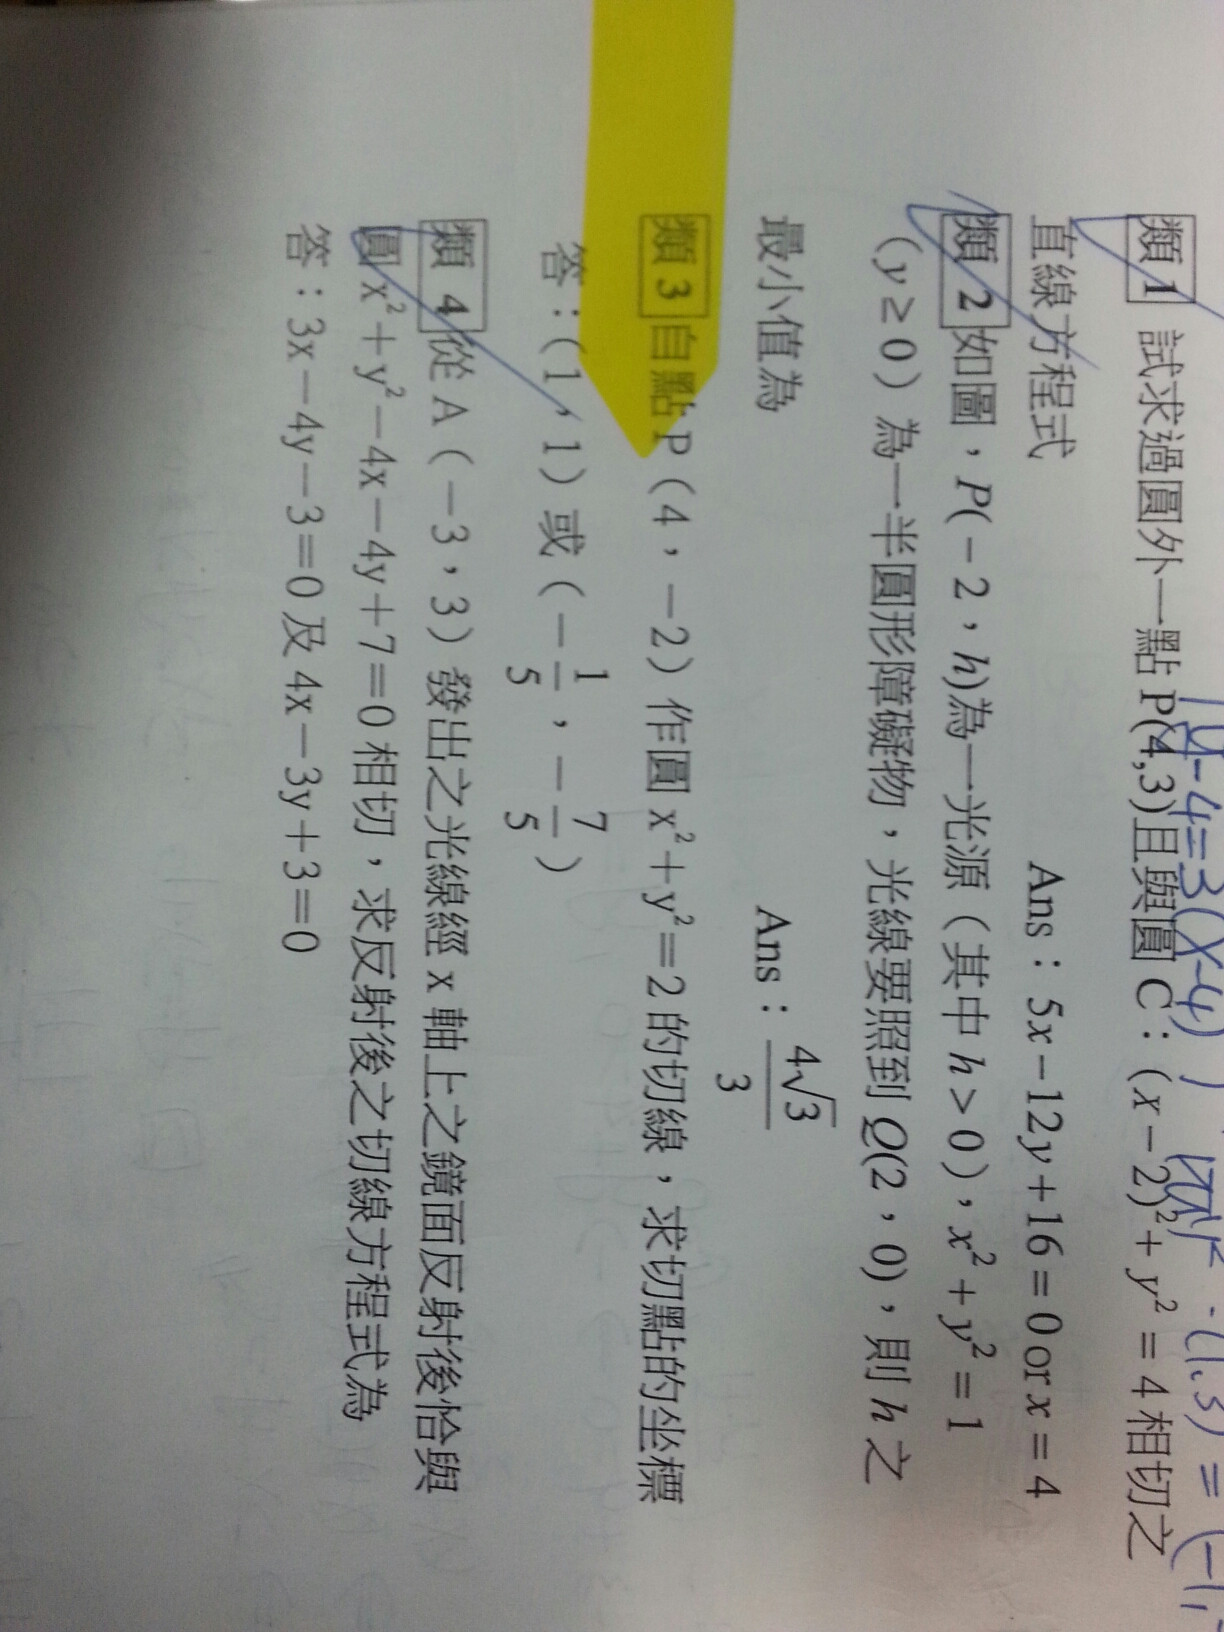 y-4=3(x-4)
類1 試求過圓外一點 P(4,3)且與圓 C：(x－2)²＋y²＝4 相切之
直線方程式
Ans：5x－12y＋16＝0 or x＝4
類2 如圖，P(－2，h)為一光源（其中 h＞0），x²＋y²＝1
（y≥0）為一半圓形障礙物，光線要照到 Q(2，0)，則 h 之
最小值為
Ans：4√3/3
類3 自點 P（4，－2）作圓 x²＋y²＝2 的切線，求切點的坐標
答：（1，1）或（－1/5，－7/5）
類4 從 A（－3，3）發出之光線經 x 軸上之鏡面反射後恰與
圓 x²＋y²－4x－4y＋7＝0 相切，求反射後之切線方程式為
答：3x－4y－3＝0 及 4x－3y＋3＝0